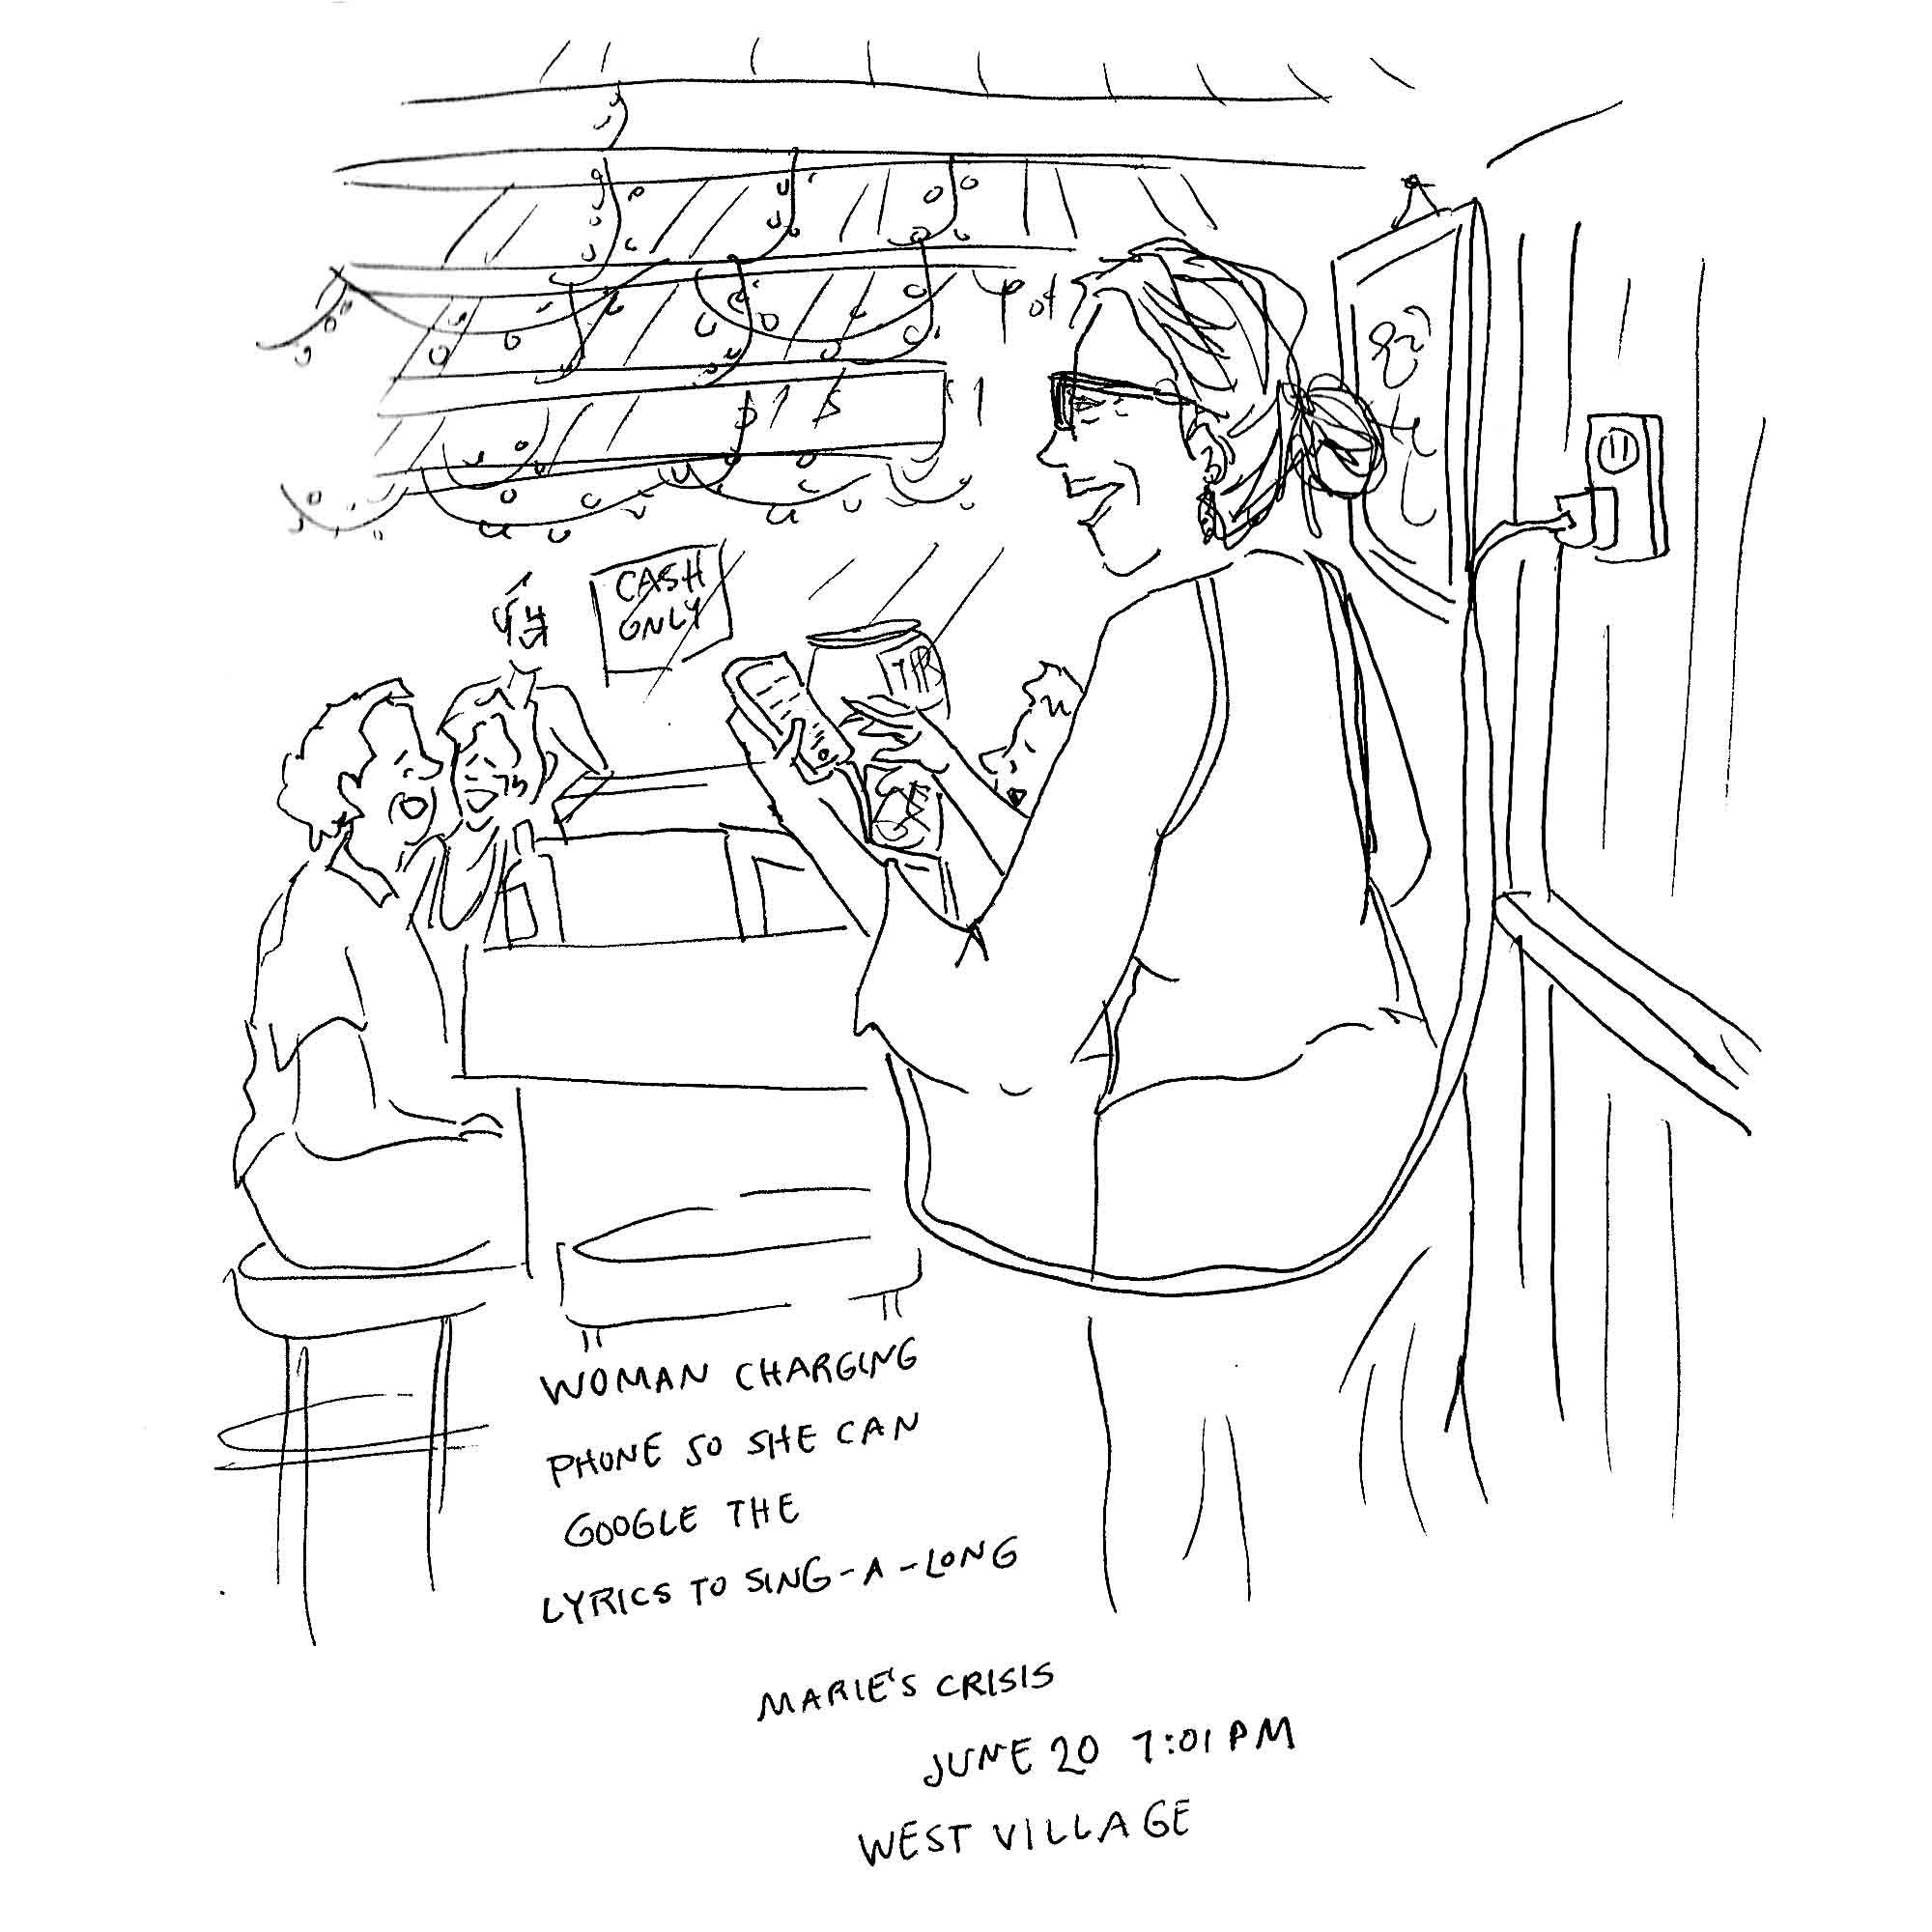 CASH
ONLY
TIPS
WOMAN CHARGING
PHONE SO SHE CAN
GOOGLE THE
LYRICS TO SING-A-LONG
MARIE'S CRISIS
JUNE 20 7:01 PM
WEST VILLAGE